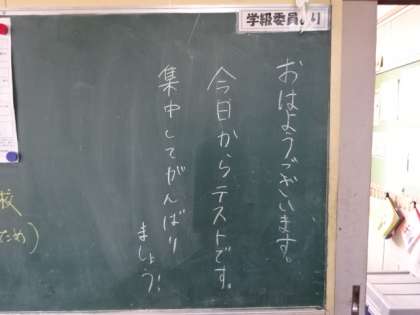 学級委員より
おはようございます。
今日からテストです。
集中してがんばり
ましょう!
校
ため)